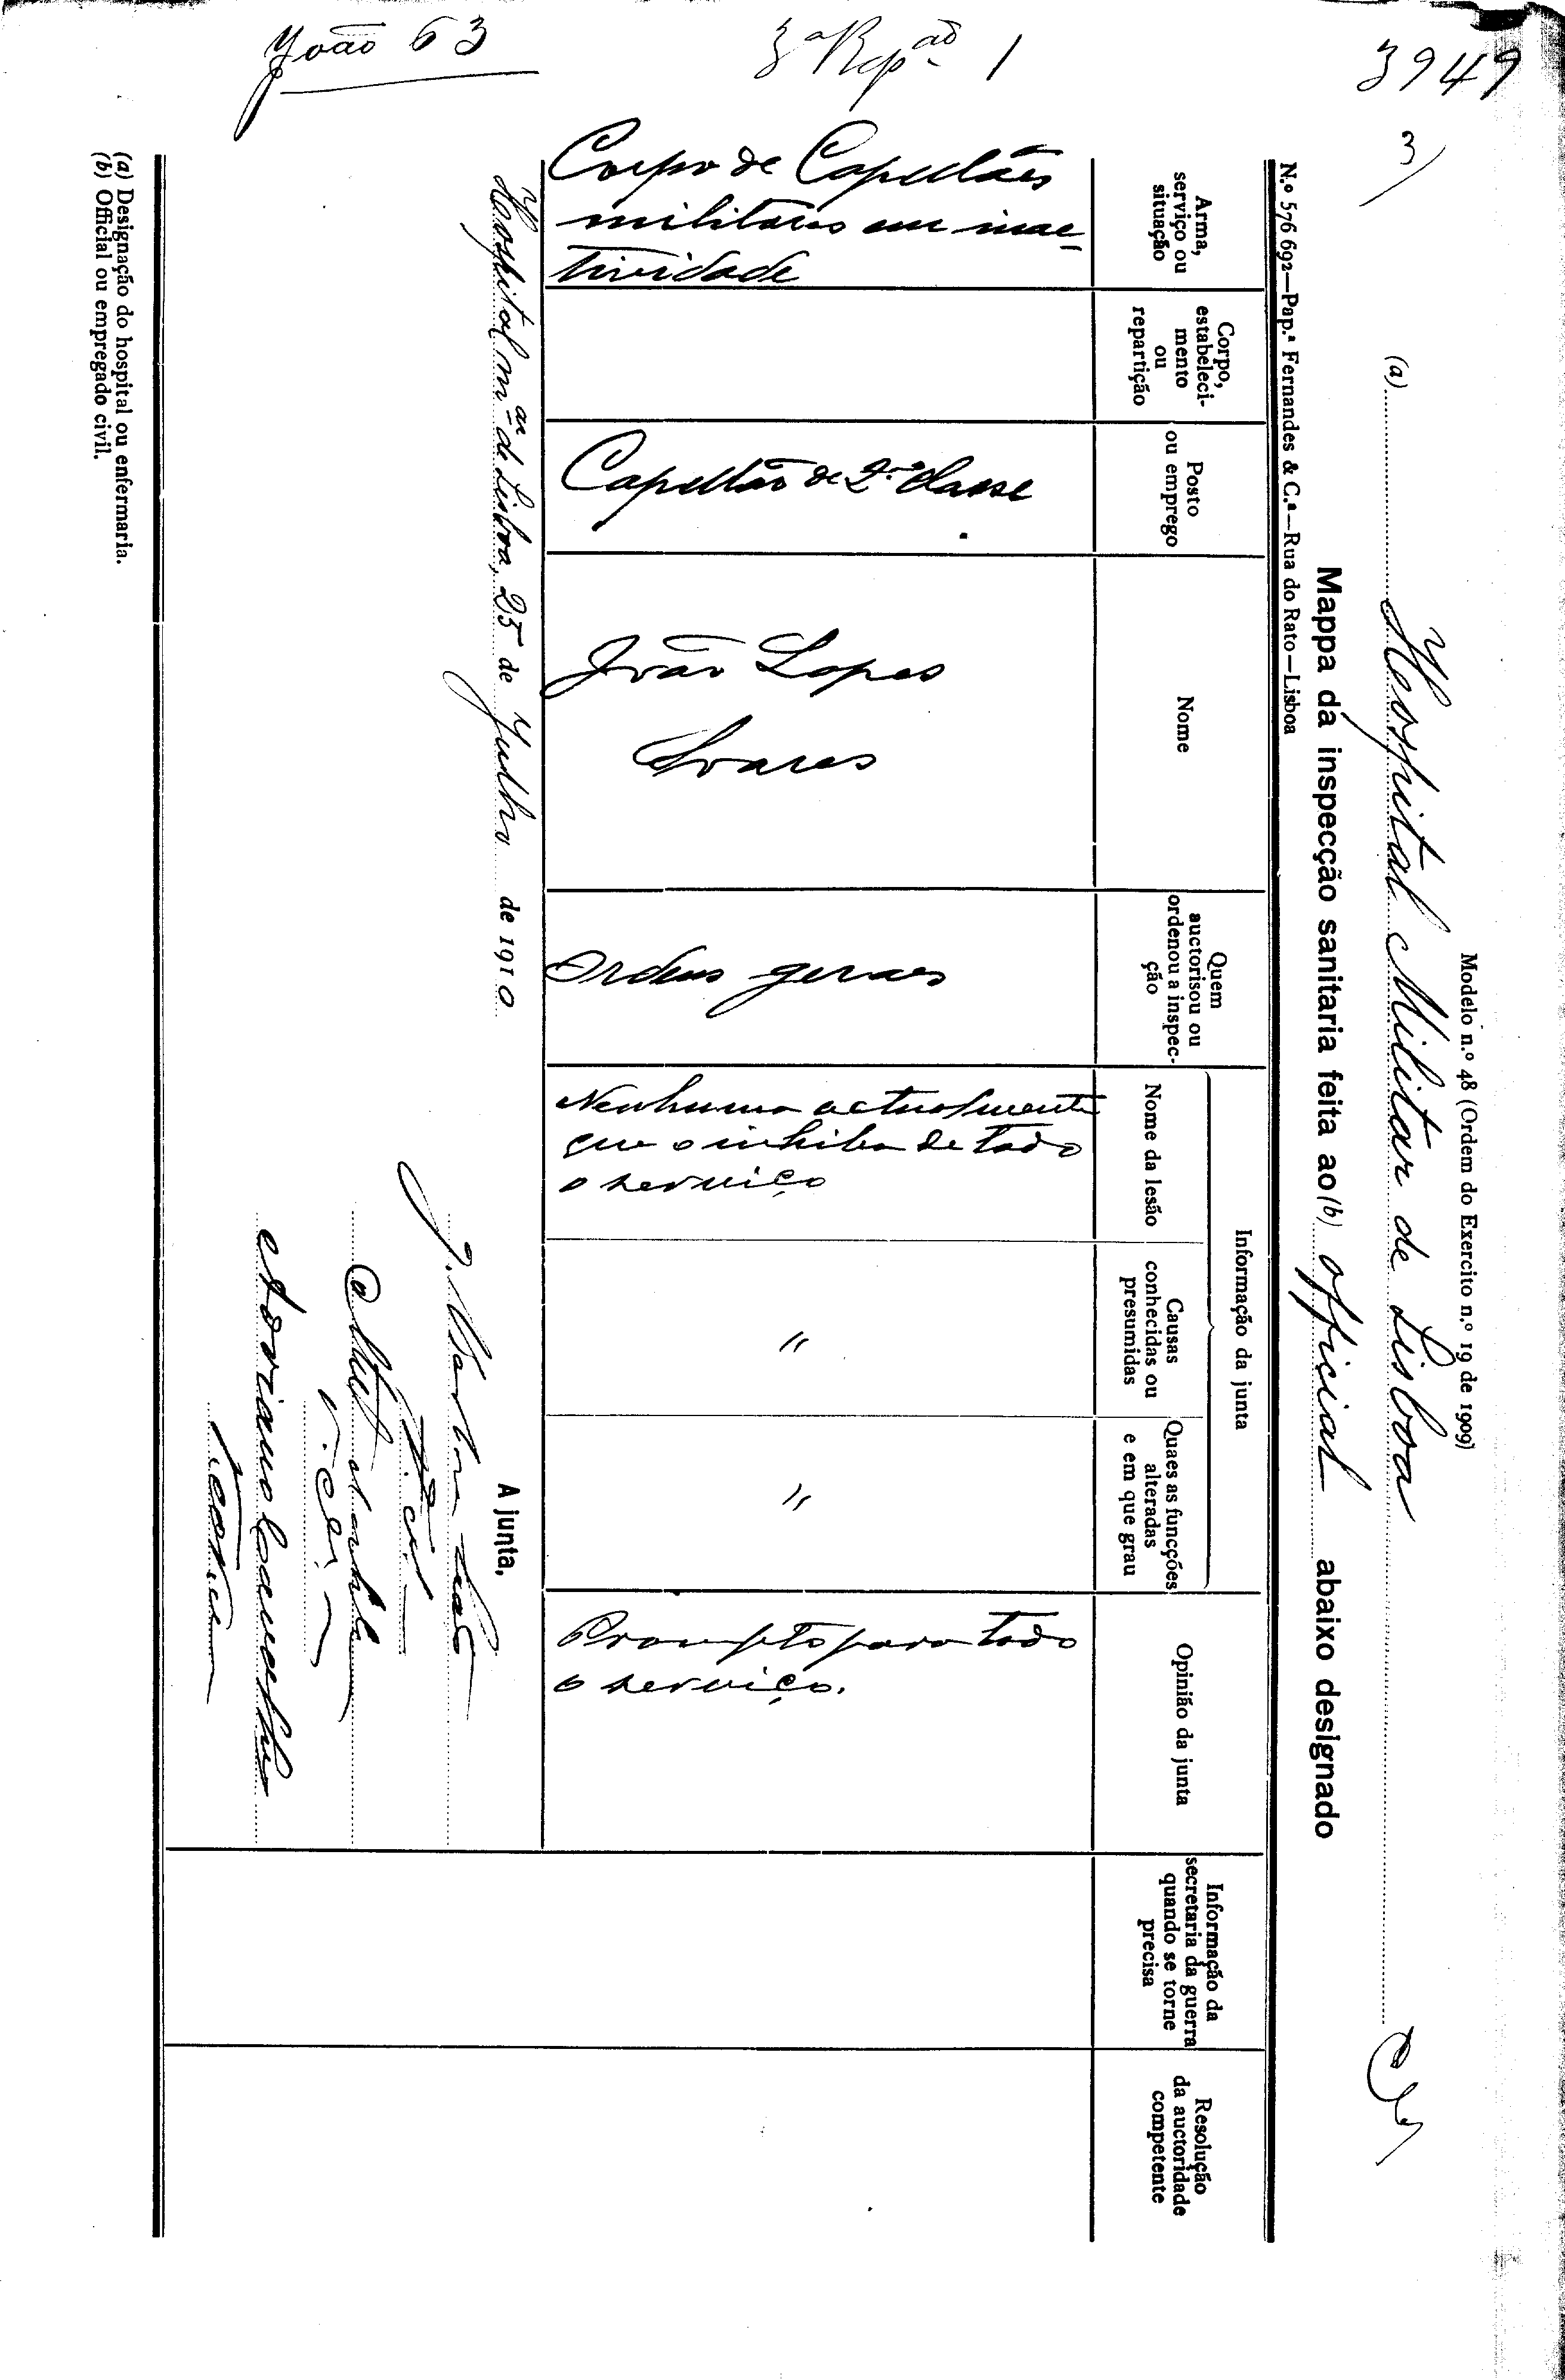 João 63
3ª Repᵃᵒ 1
3949
3
Modelo n.º 48 (Ordem do Exercito n.º 19 de 1909)
(a) Hospital Militar de Lisboa
Mappa da inspecção sanitaria feita ao (b) official abaixo designado
N.º 576 692—Pap.ª Fernandes & C.ª—Rua do Rato—Lisboa
Arma,
serviço ou
situação
Corpo,
estabeleci-
mento
ou
repartição
Posto
ou emprego
Nome
Quem
auctorisou ou
ordenou a inspec-
ção
Informação da junta
Nome da lesão
Causas
conhecidas ou
presumidas
Quaes as funcções
alteradas
e em que grau
Opinião da junta
Informação da
secretaria da guerra
quando se torne
precisa
Resolução
da auctoridade
competente
Corpo de Capellães
militares em inac-
tividade
Capellão de 2.ª classe
João Lopes
Soares
Ordens geraes
Nenhuma actualmente
que o inhiba de todo
o serviço
"
"
Prompto para todo
o serviço.
Hospital mᵃʳ de Lisboa, 25 de Julho de 1910
A junta,
(a) Designação do hospital ou enfermaria.
(b) Official ou empregado civil.